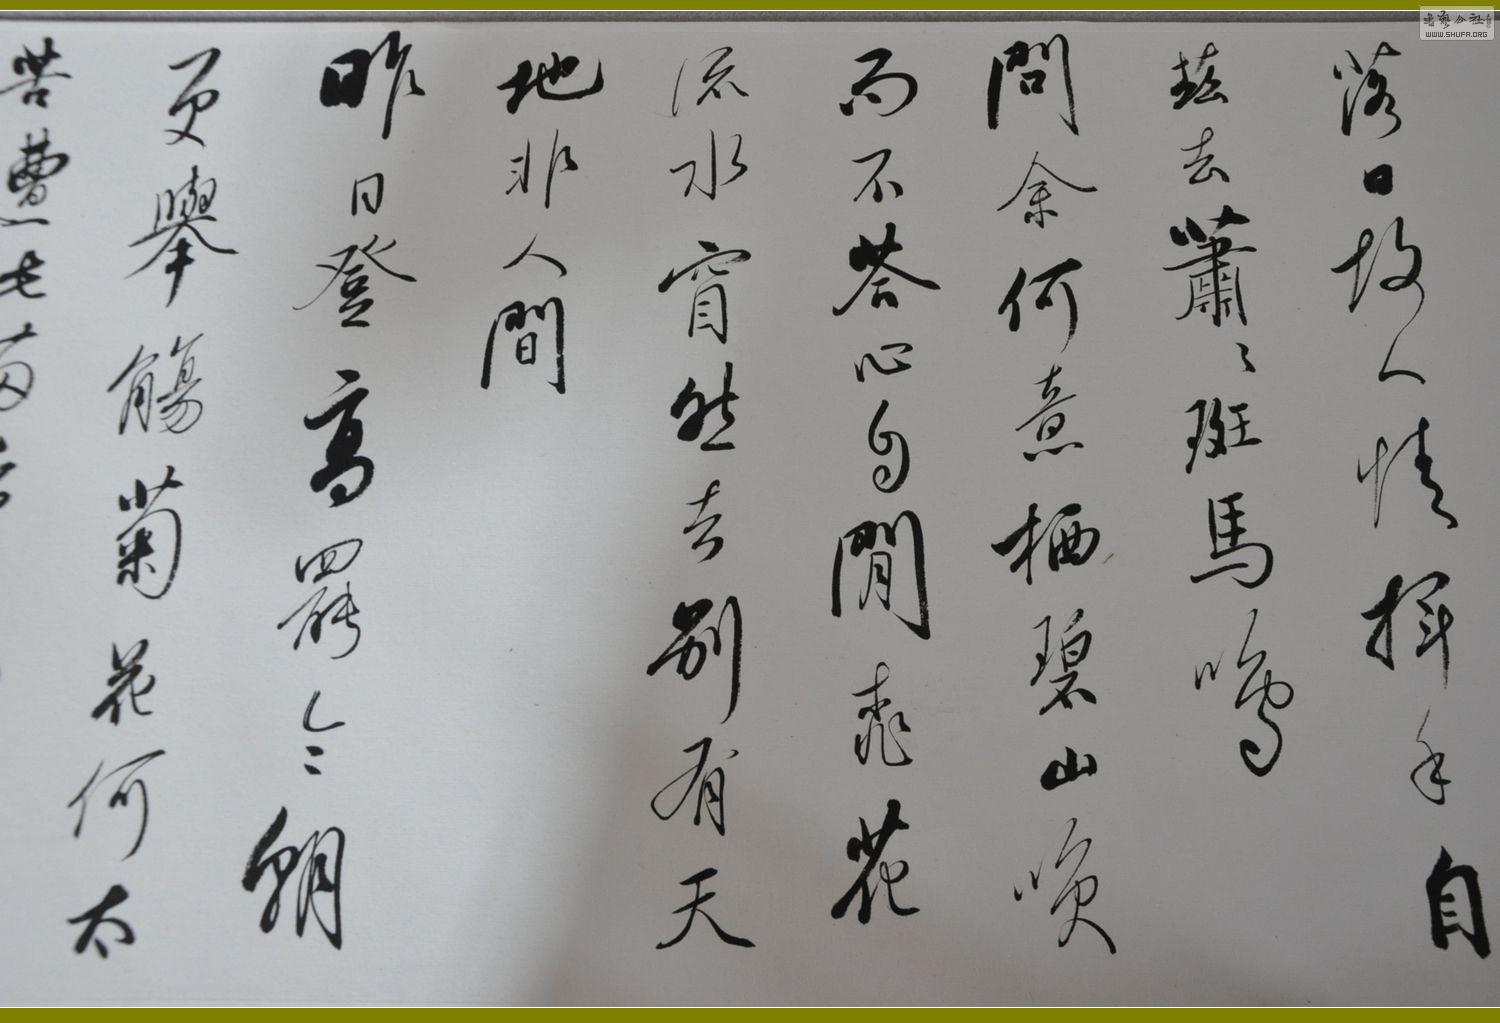 落日故人情揮手自
茲去蕭〻斑馬鳴
問余何意栖碧山咲
而不荅心自閒桃花
流水窅然去別有天
地非人間
昨日登高罷今朝
更舉觴菊花何太
苦遭此兩
書藝公社
WWW.SHUFA.ORG